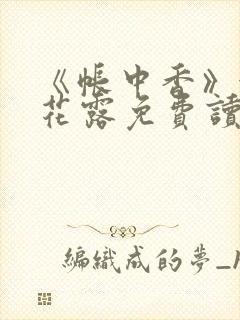 《帳中香》
花露免費讀
編織成的夢_